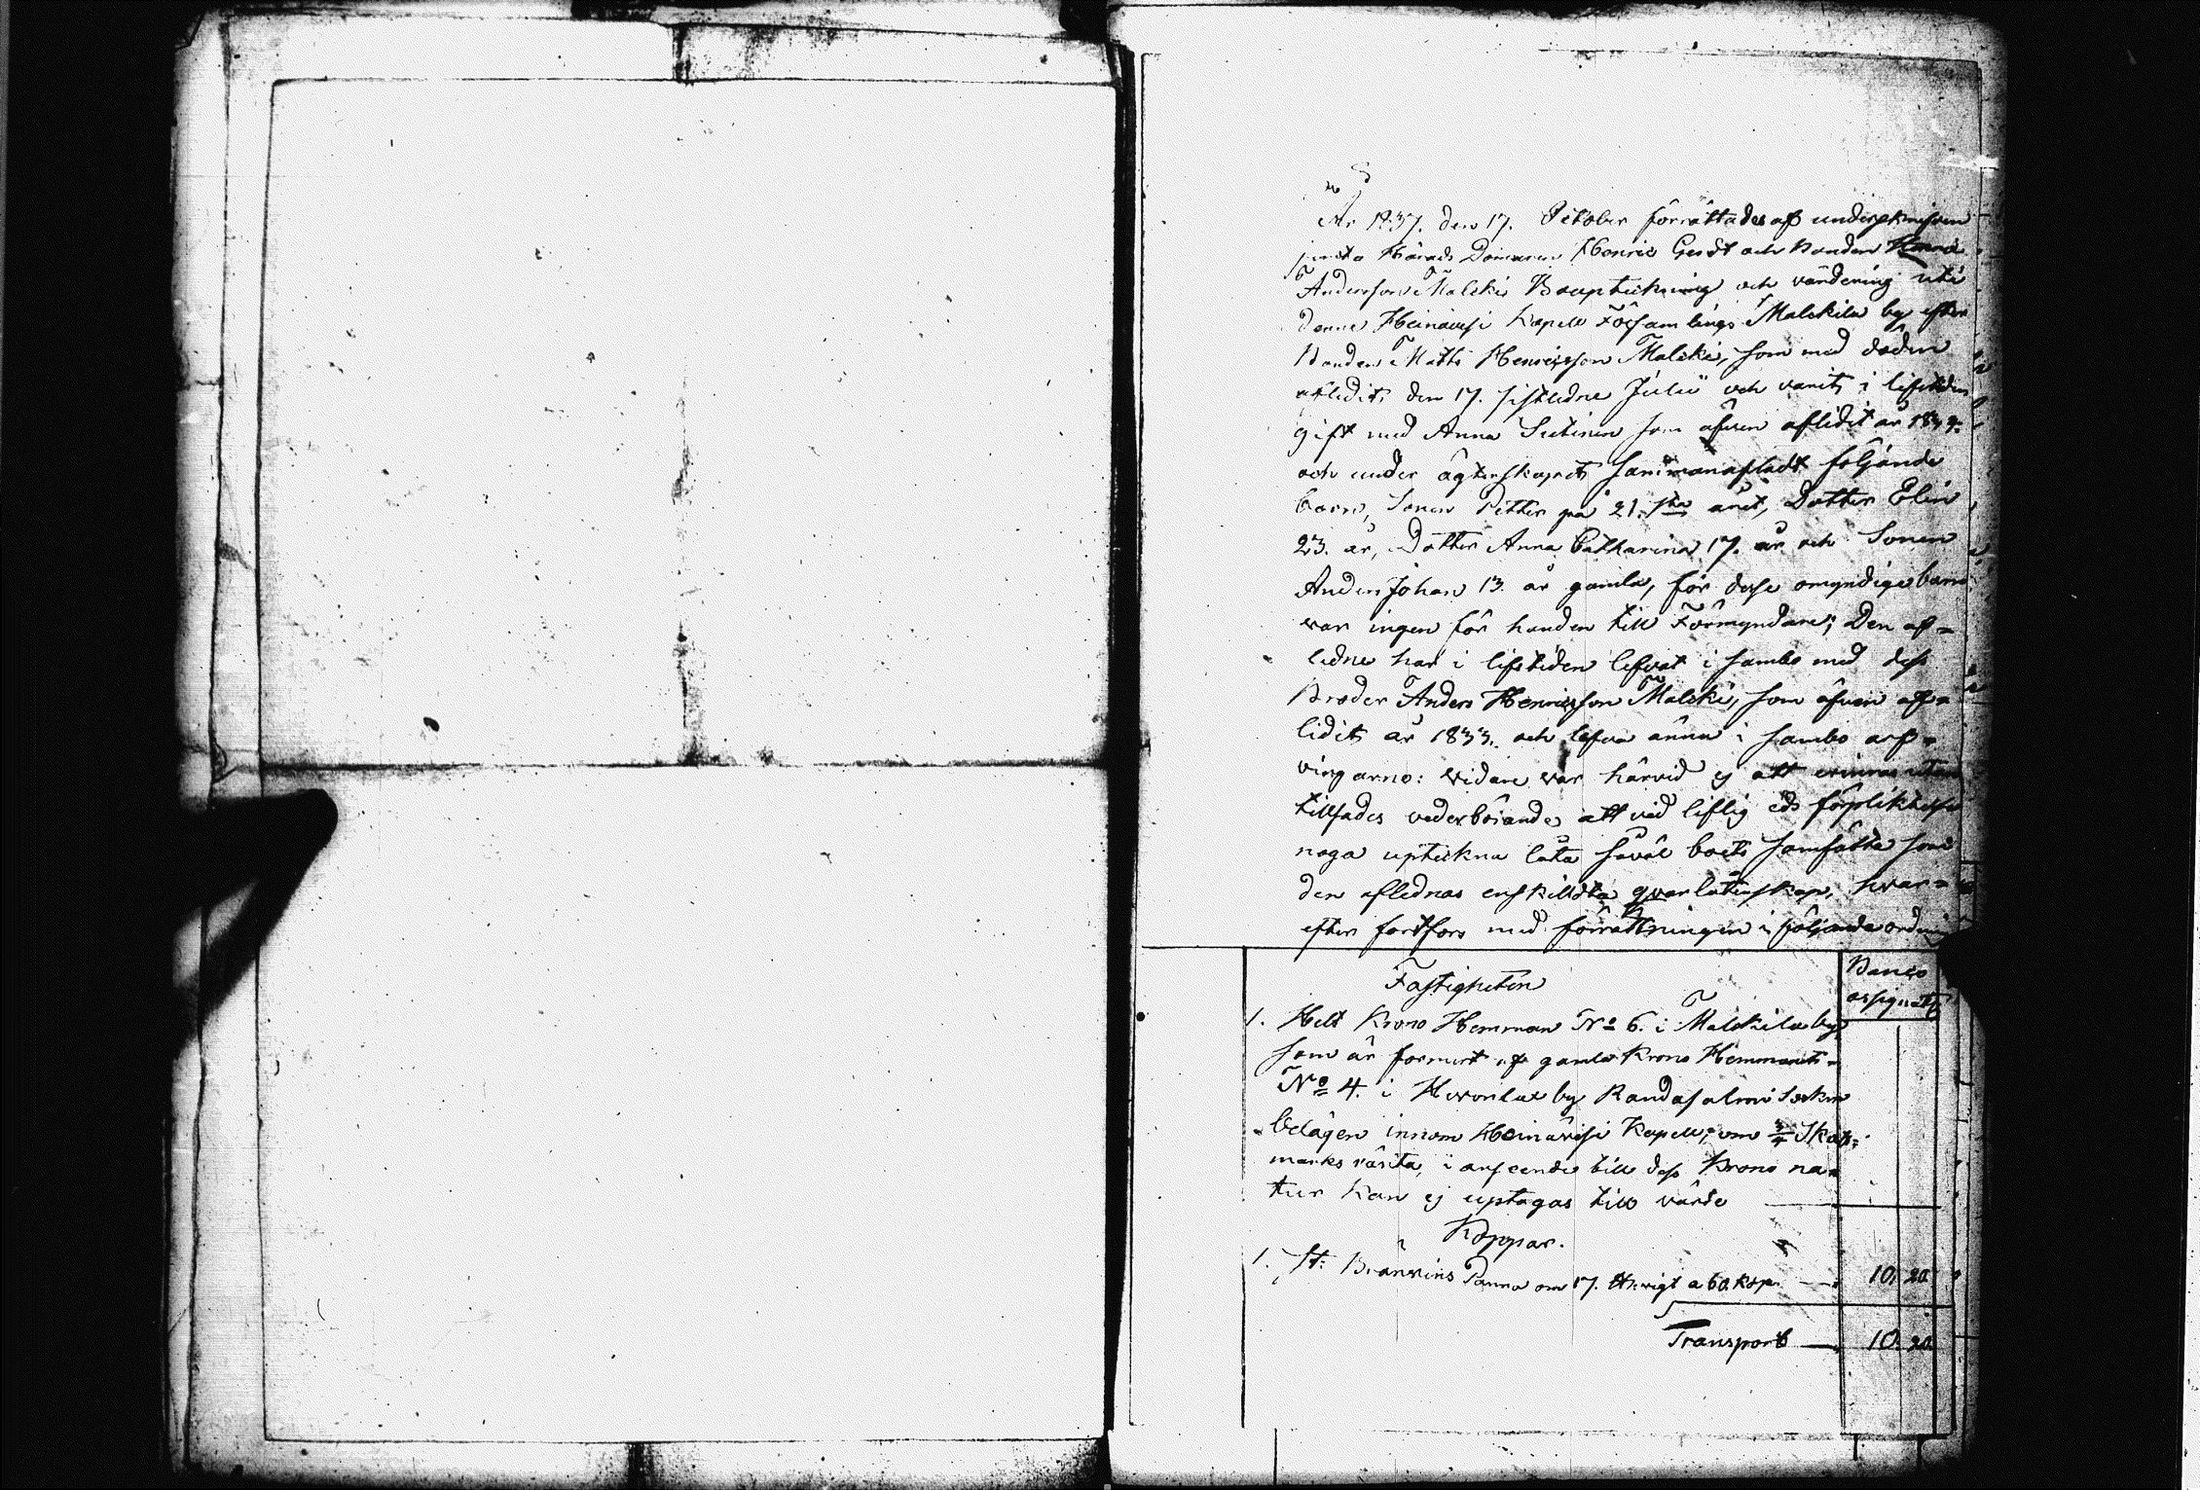 År 1837. den 17. October förrättades af underskrifven
Härads Domaren Henric Gerdt och Bonden
Andersson Malski Bouptekning och värdering uti
denne Heinävesi Kapell Församlings Malskila by efter
Bonden Matts Henricsson Malski, som med döden
aflidit den 17. sistledne Julii och varit i lifstiden
gift med Anna Sutinen som äfven aflidit år
och under ägtenskapet sammanafladt följande
barn, Sonen Petter på 21.sta året, Dotter Elin
23. år, Dotter Anna Catharina 17. år och Sonen
Anders Johan 13. år gamla, för desse omyndige barn
var ingen för handen till Förmyndare; Den af-
ledne har i lifstiden lefvat i sambo med dess
Broder Anders Henricsson Malski, som äfven af-
lidit år 1833. och lefva ännu i sambo arf-
vingarno: vidare var härvid ej att erinras utan
tillsades vederbörande att vid liflig eds förpliktelse
noga uptekna låta såväl boets samfälta som
den aflednas enskildta qvarlåtenskap, hvar-
efter fortfors med förrättningen i följande ordning
Fastigheten
Banco
assignatt
1. Helt Krono Hemman No 6. i Malskila by,
som är formert af gamla Krono Hemmanet
No 4. i by Randasalmi Sockn
belägen innom Heinävesi Kapell, om 3/4 Skatt-
marks ränta, i anseende till dess Krono na-
tur kan ej uptagas till värde
Koppar.
1. st: Bränvins Panna om 17. vigt a 60. Kop. 10. 20.
Transport 10. 20.